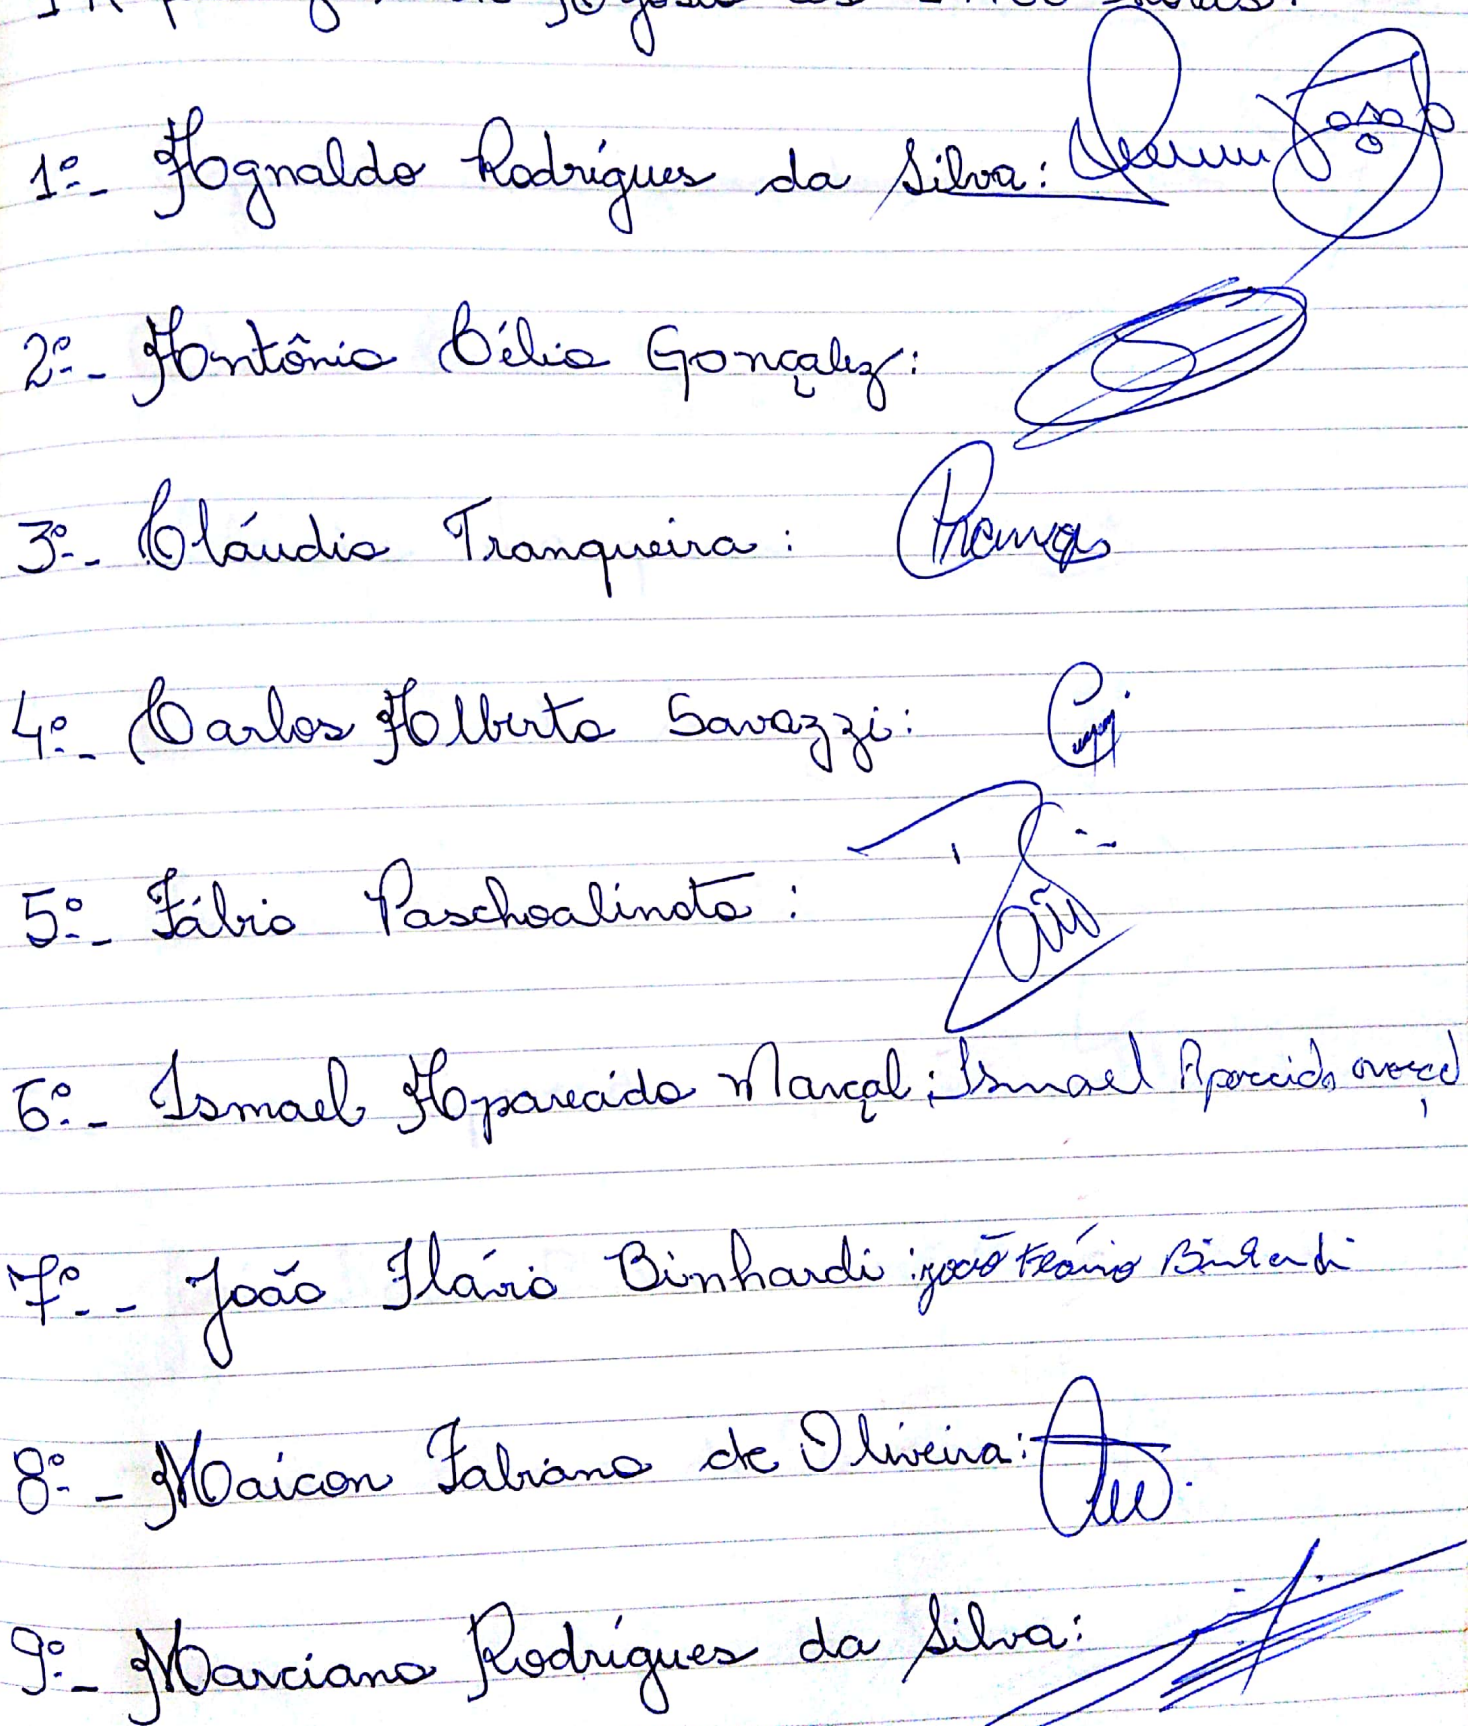 às 19:00 horas.
1º - Agnaldo Rodrígues da Silva:
2º - Antônio Célio Gonçalez:
3º - Cláudio Tranqueira:
4º - Carlos Alberto Savazzi:
5º - Fábio Paschoalinoto:
6º - Ismael Aparecido Marçal: Ismael Aparecido
7º - João Flávio Binhardi: João Flávio Binhardi
8º - Maicon Fabiano de Oliveira:
9º - Marciano Rodrígues da Silva: